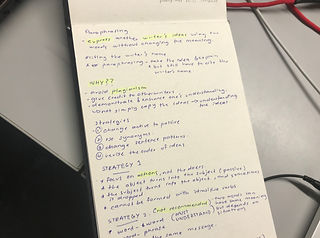 Paraphrasing
- express another writer's ideas using own
words without changing the meaning.
citing the writer's name
paraphrasing - take the idea, explain
but still have to cite the
writer's name
WHY??
- avoid plagiarism
- give credit to other writers
- demonstrate & enhance one's understanding
- not simply copy the ideas → understanding
the ideas
Strategies
① change active to passive
② use synonyms
③ change sentence patterns
④ revise the order of ideas
STRATEGY 1
* focus on actions, not the doers
* the object turns into the subject (passive)
* the subject turns into the object and sometimes
is dropped
* cannot be formed with intransitive verbs
STRATEGY 2 (not recommended)
- word → word (MUST UNDERSTAND)
two words can have same meaning
but depends on situations
phrase
the same message.